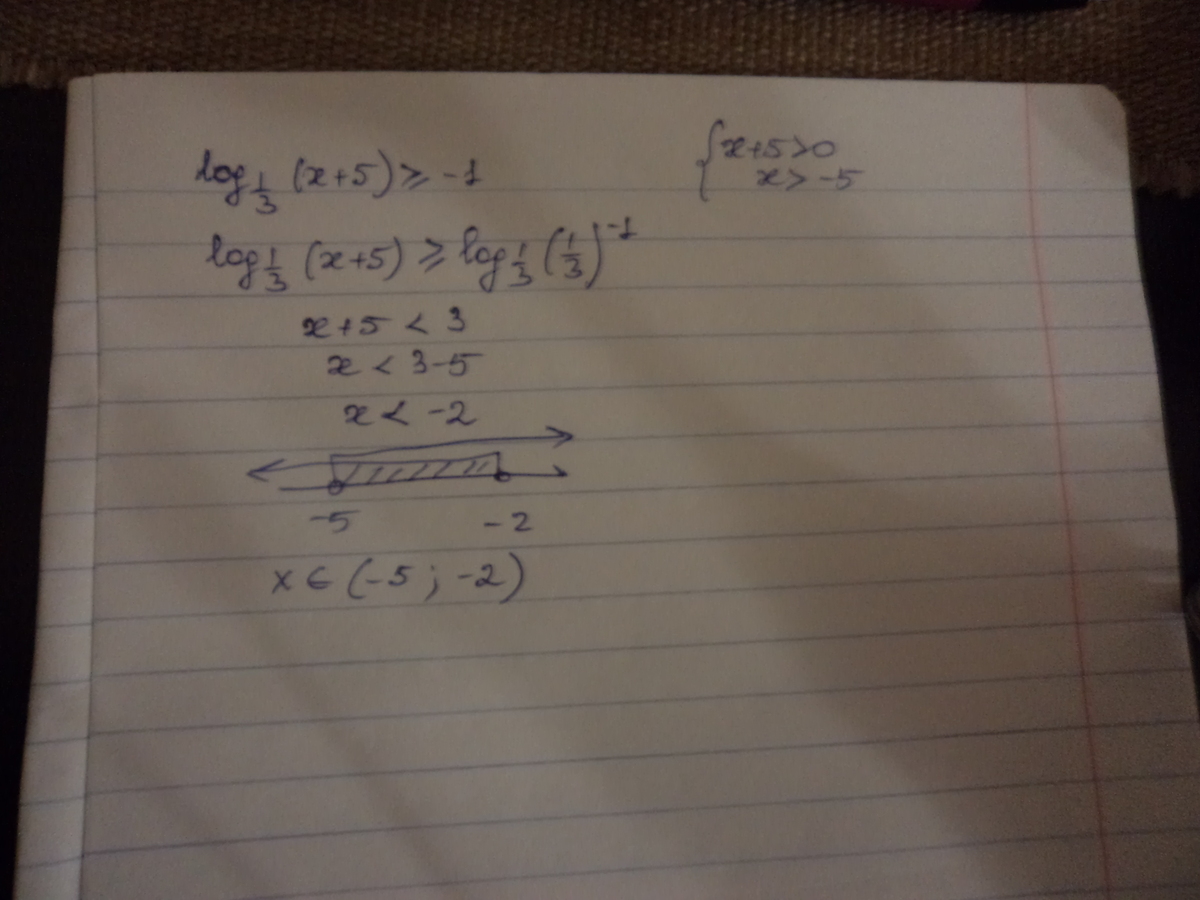 log 1/3 (x+5) ⩾ -1
{x+5>0
x > -5
log 1/3 (x+5) ⩾ log 1/3 (1/3)^-1
x+5 < 3
x < 3-5
x < -2
-5 -2
x ∈ (-5 ; -2)